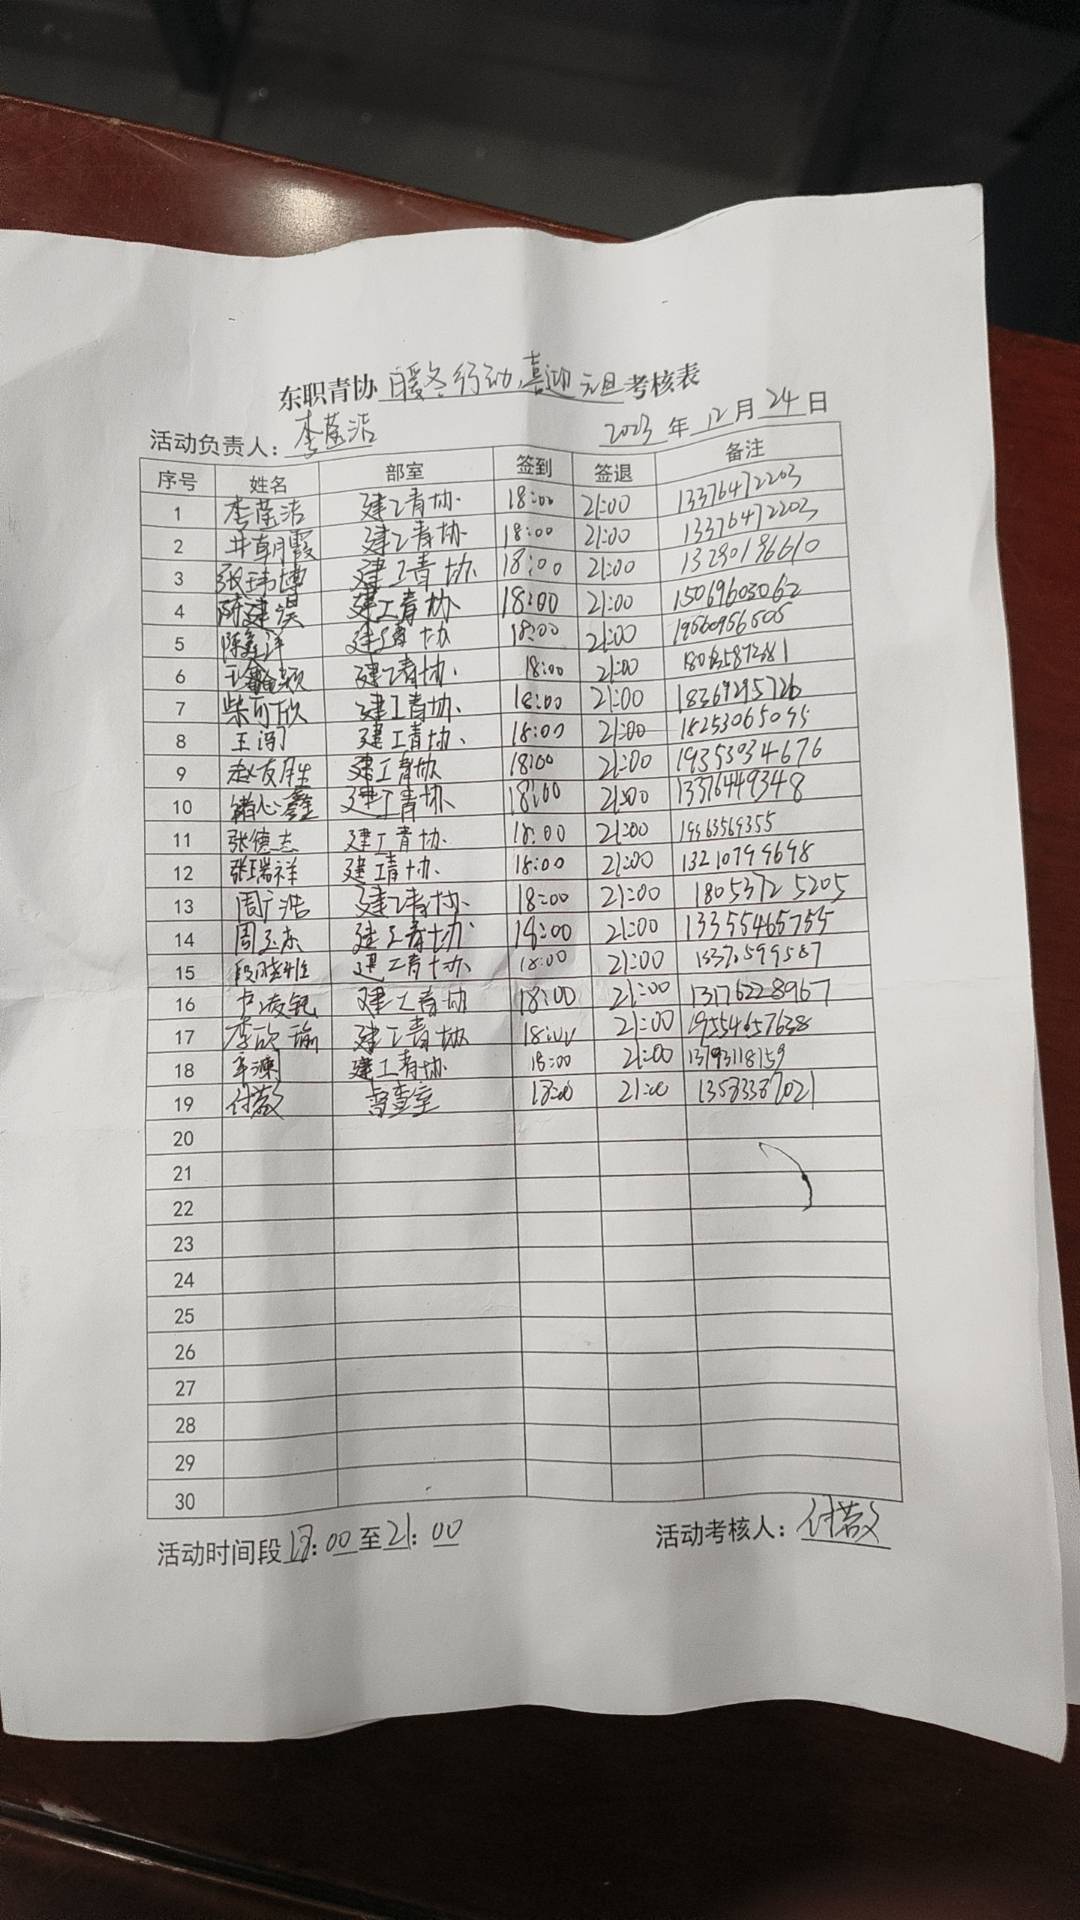 东职青协 暖冬行动，喜迎元旦 考核表
活动负责人： 李莹洁 2023 年 12 月 24 日
序号 姓名 部室 签到 签退 备注
1 李莹洁 建工青协 18:00 21:00 13376472203
2 井朝霞 建工青协 18:00 21:00 13376472203
3 张玮博 建工青协 18:00 21:00 13290186610
4 陈建淏 建工青协 18:00 21:00 15069603062
5 陈鑫洋 建工青协 18:00 21:00 19560956505
6 建工青协 18:00 21:00
7 柴可欣 建工青协 18:00 21:00 18369295726
8 王 建工青协 18:00 21:00 18253065095
9 赵友胜 建工青协 18:00 21:00 19353034676
10 建工青协 18:00 21:00 13376449348
11 张德志 建工青协 18:00 21:00 19363569355
12 张瑞祥 建工青协 18:00 21:00 13210799698
13 周广浩 建工青协 18:00 21:00 18053725205
14 周玉东 建工青协 18:00 21:00 13355465755
15 建工青协 18:00 21:00
16 卢凌 建工青协 18:00 21:00 13176228967
17 李欣瑜 建工青协 18:00 21:00 19554657638
18 建工青协 18:00 21:00 13793118159
19 付蔷 督查室 18:00 21:00 13583387021
20
21
22
23
24
25
26
27
28
29
30
活动时间段 18:00 至 21:00 活动考核人：